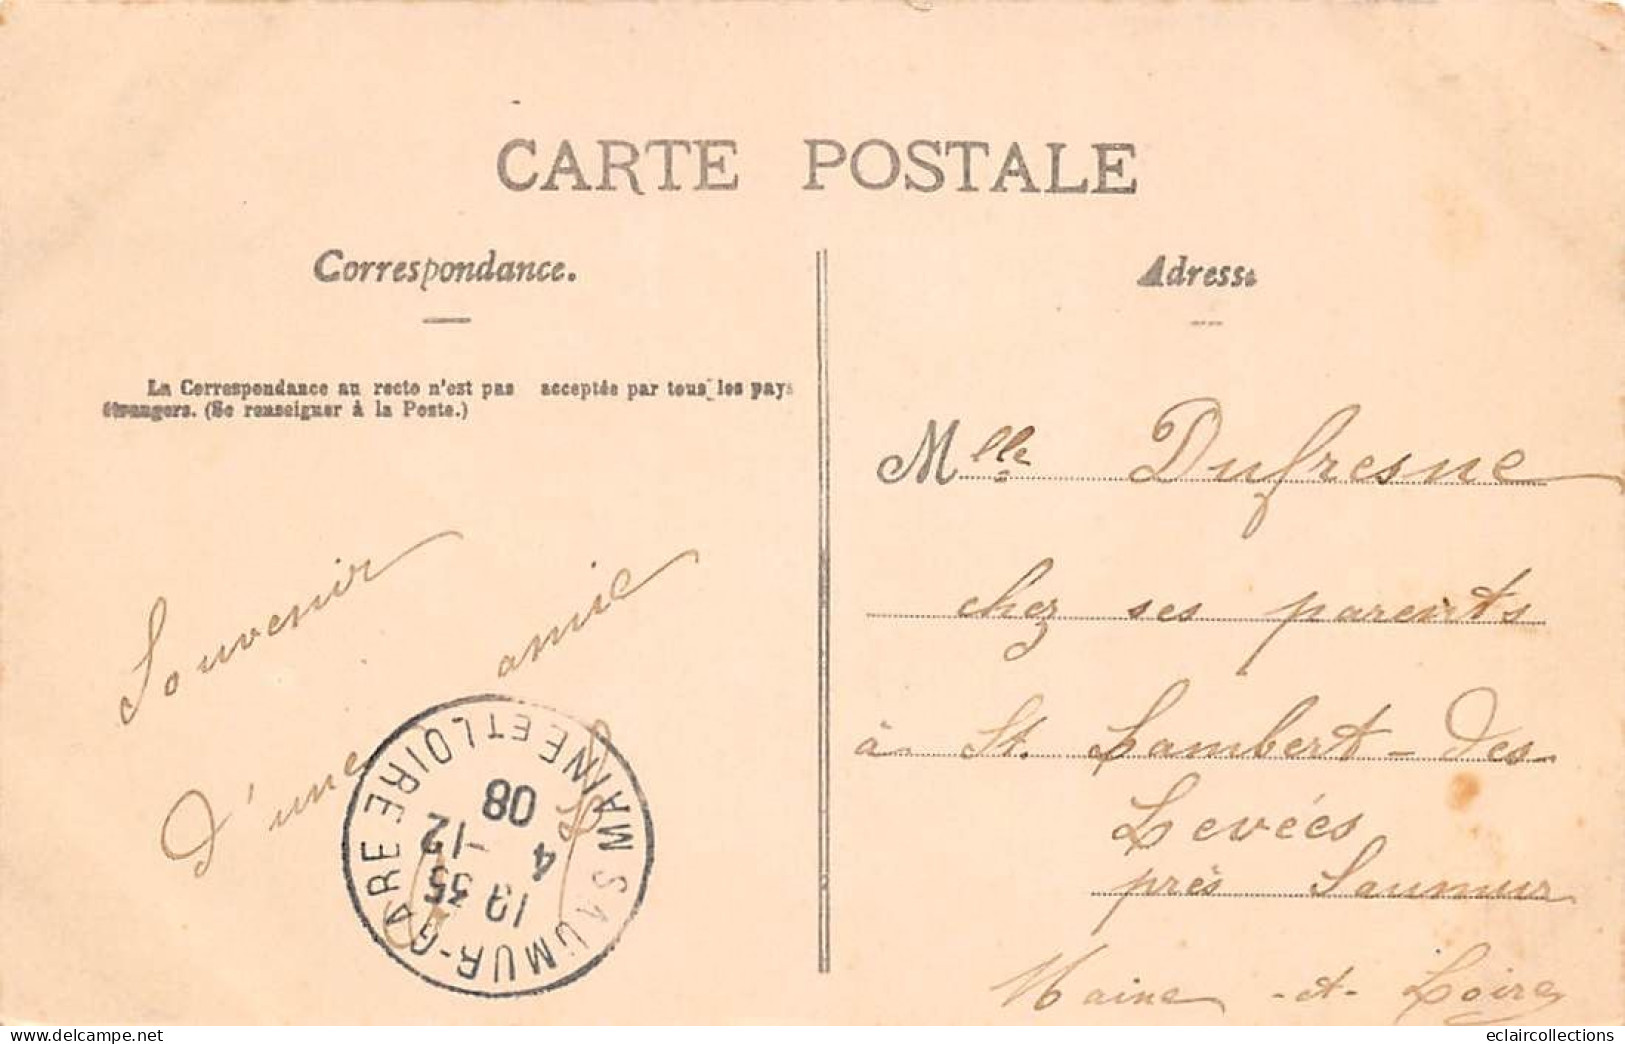 CARTE POSTALE
Correspondance.
Adresse
La Correspondance au recto n'est pas acceptée par tous les pays
étrangers. (Se renseigner à la Poste.)
Souvenir
d'une amie
Mlle Dufresne
chez ses parents
à St. Lambert-des-
Levées
près Saumur
Maine-et-Loire
SAUMUR-GARE MAINE ET LOIRE
19 35
4 -12
08
eclaircollections